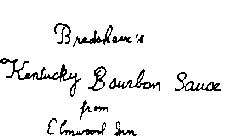 Bradshaw's
Kentucky Bourbon Sauce
from
Elmwood Inn